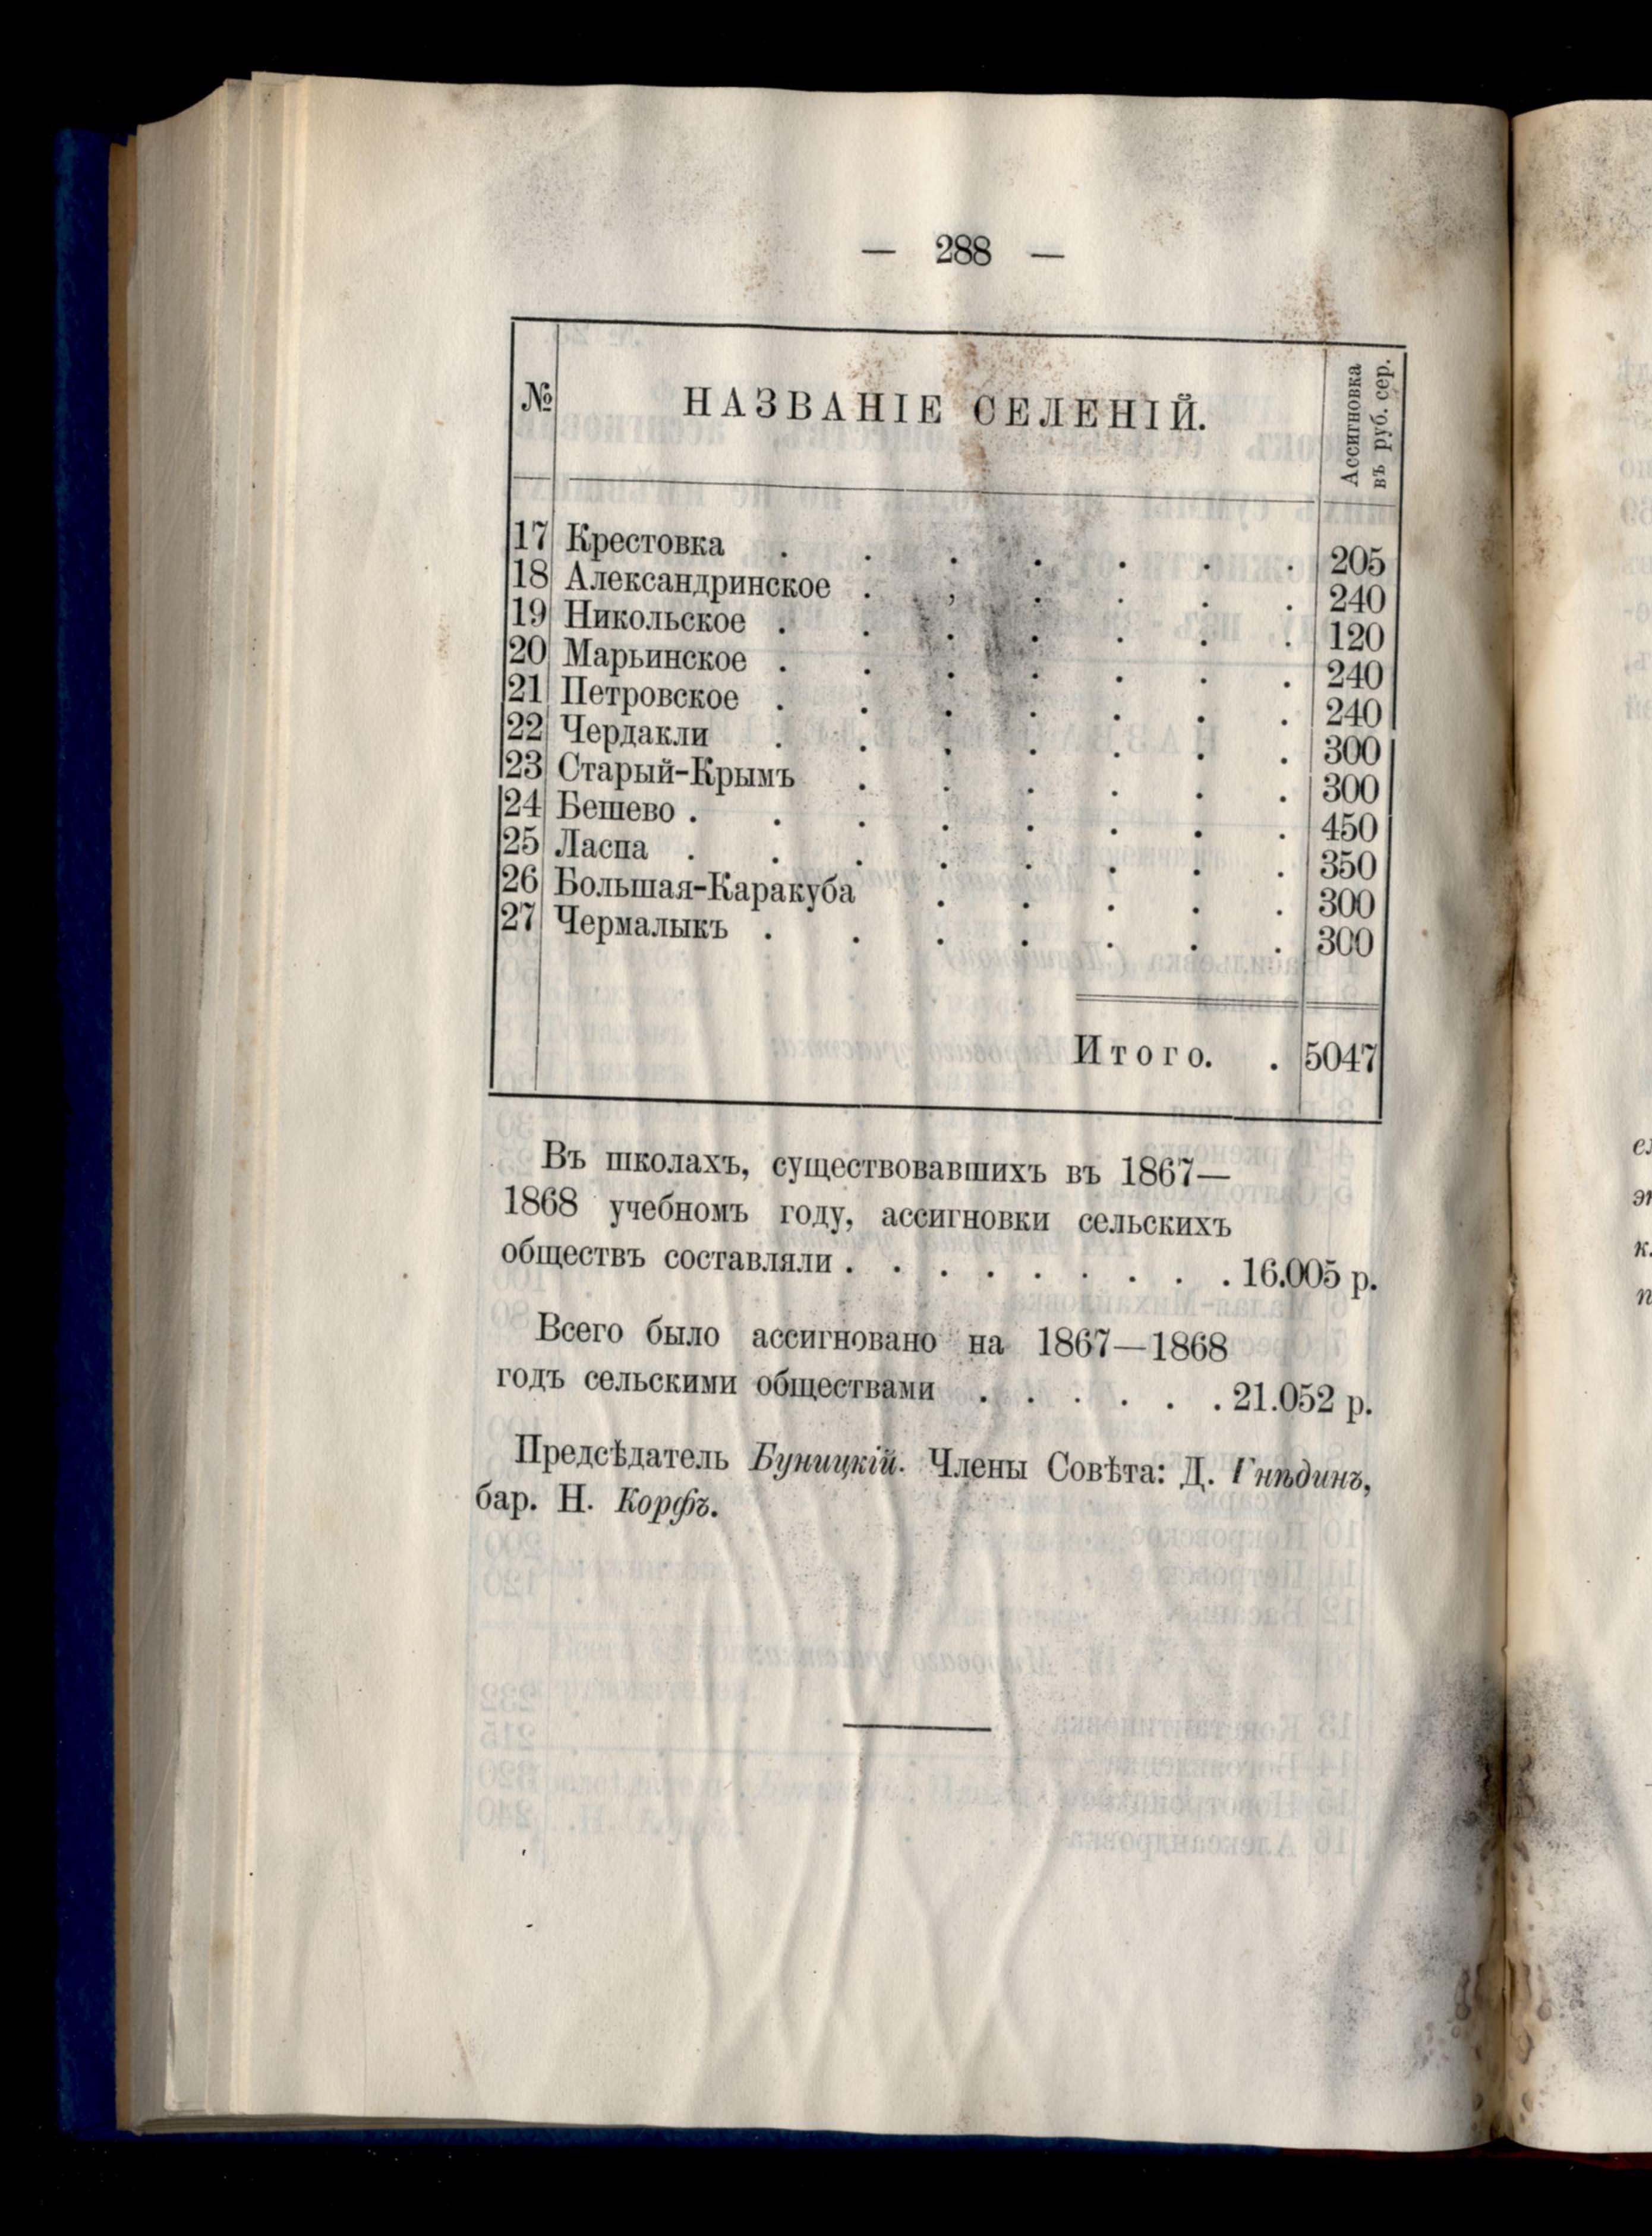 — 288 —
№ НАЗВАНІЕ СЕЛЕНІЙ. Ассигновка въ руб. сер.
17 Крестовка . . . . . . . 205
18 Александринское . , . . . . 240
19 Никольское . . . . . . . 120
20 Марьинское . . . . . . . 240
21 Петровское . . . . . . . 240
22 Чердакли . . . . . . . 300
23 Старый-Крымъ . . . . . . 300
24 Бешево . . . . . . . . 450
25 Ласпа . . . . . . . . 350
26 Большая-Каракуба . . . . . 300
27 Чермалыкъ . . . . . . . 300
Итого. . 5047
Въ школахъ, существовавшихъ въ 1867—
1868 учебномъ году, ассигновки сельскихъ
обществъ составляли . . . . . . . . . 16.005 р.
Всего было ассигновано на 1867—1868
годъ сельскими обществами . . . . . . 21.052 р.
Предсѣдатель Буницкій. Члены Совѣта: Д. Гнѣдинъ,
бар. Н. Корфъ.